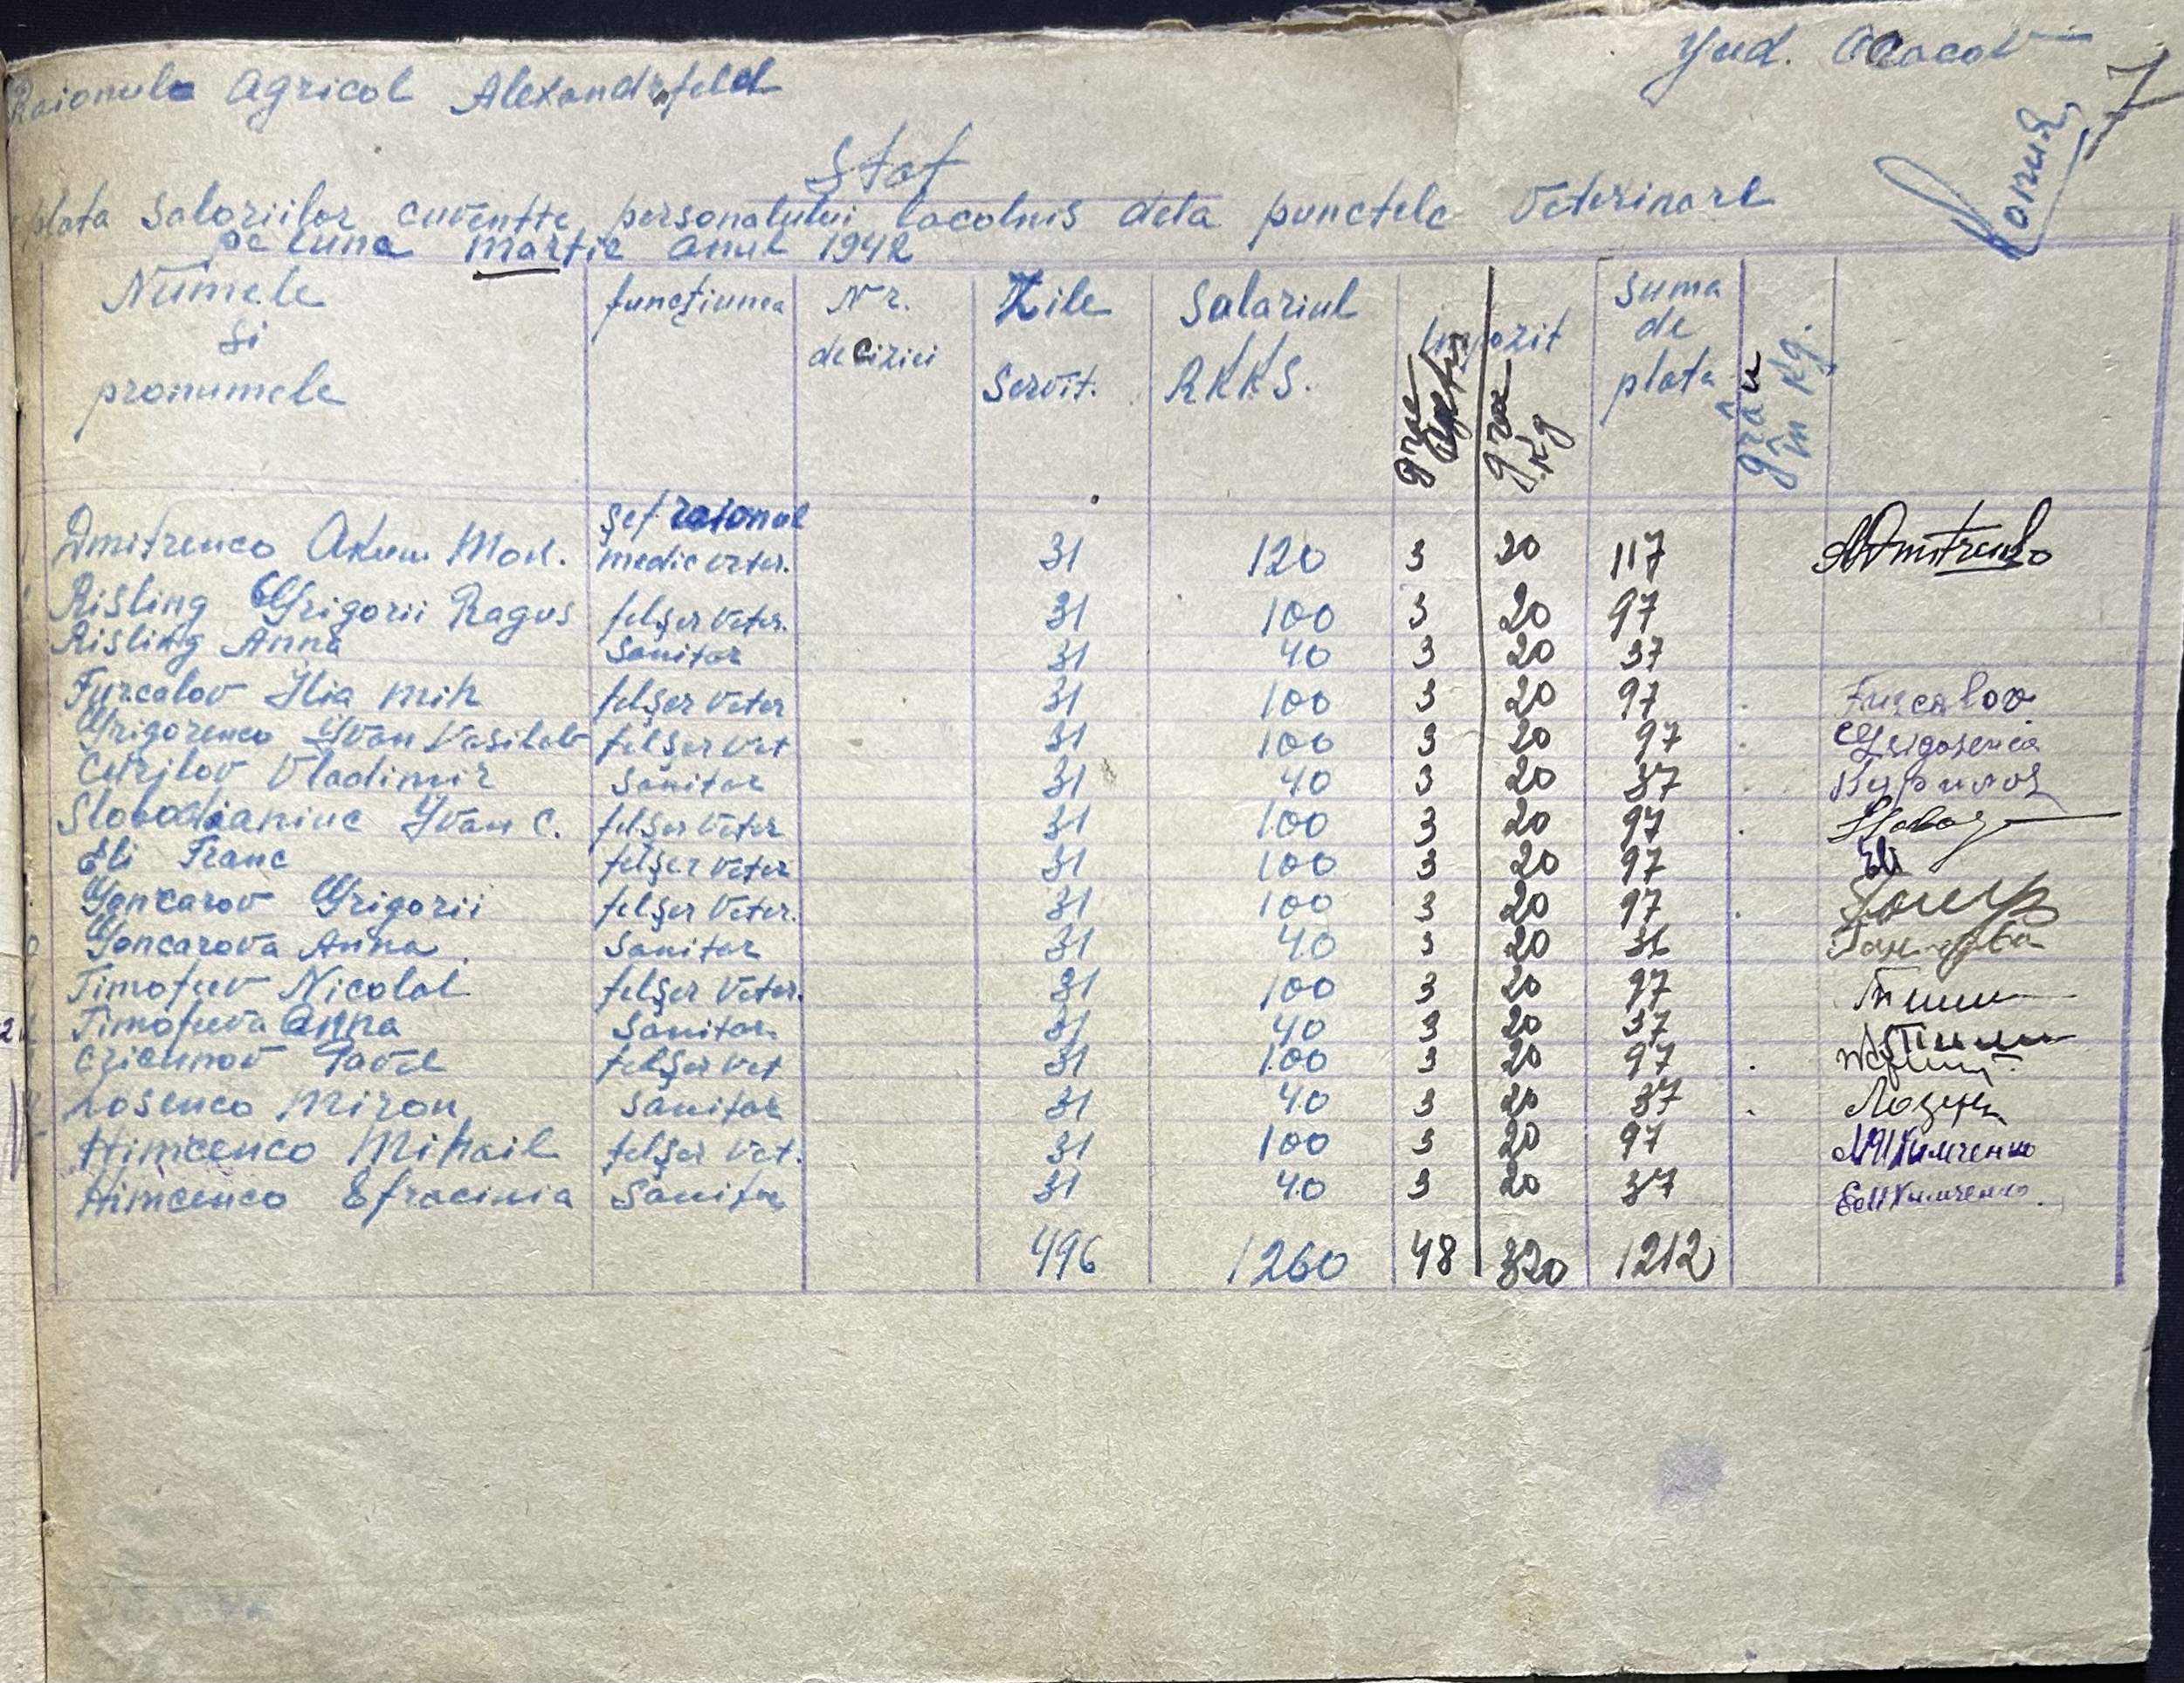 Jud. Oceacov
7
Raionul Agricol Alexandrfeld
Stat
plata salariilor cuventte personalului lacolnis dela punctele Veterinare
pe luna martie anul 1942
Numele și pronumele funcțiunea Nr. deciziei Zile Servit. Salariul RKKS. Impozit suma de plata grâu în kg.
gra kg
șef raional
Dmitrenco Akum Mod. medic veter. 31 120 3 20 117 ADmitrenko
Risling Grigorii Ragus felșer Veter. 31 100 3 20 97
Risling Anna Sanitar 31 40 3 20 37
Furcalov Ilia Mih felșer Veter 31 100 3 20 97 Furcalov
Grigorenco Ivan Vasilev felșer Vet 31 100 3 20 97 Grigorenco
Curilov Vladimir Sanitar 31 40 3 20 37 Курилов
Slobodianiuc Ivan C. felșer Veter 31 100 3 20 97
Eli Franc felșer Veter 31 100 3 20 97 Eli
Goncarov Grigorii felșer Veter. 31 100 3 20 97
Goncarova Anna Sanitar 31 40 3 20 36
Timofeev Nicolai felșer Veter. 31 100 3 20 97
Timofeeva Anna Sanitar 31 40 3 20 37
Pavel felșer Vet 31 100 3 20 97
Losenco Miron Sanitar 31 40 3 20 37
Himcenco Mihail felșer Vet. 31 100 3 20 97 Химченко
Himcenco Efracinia Sanitar 31 40 3 20 37 Химченко.
496 1260 48 320 1212